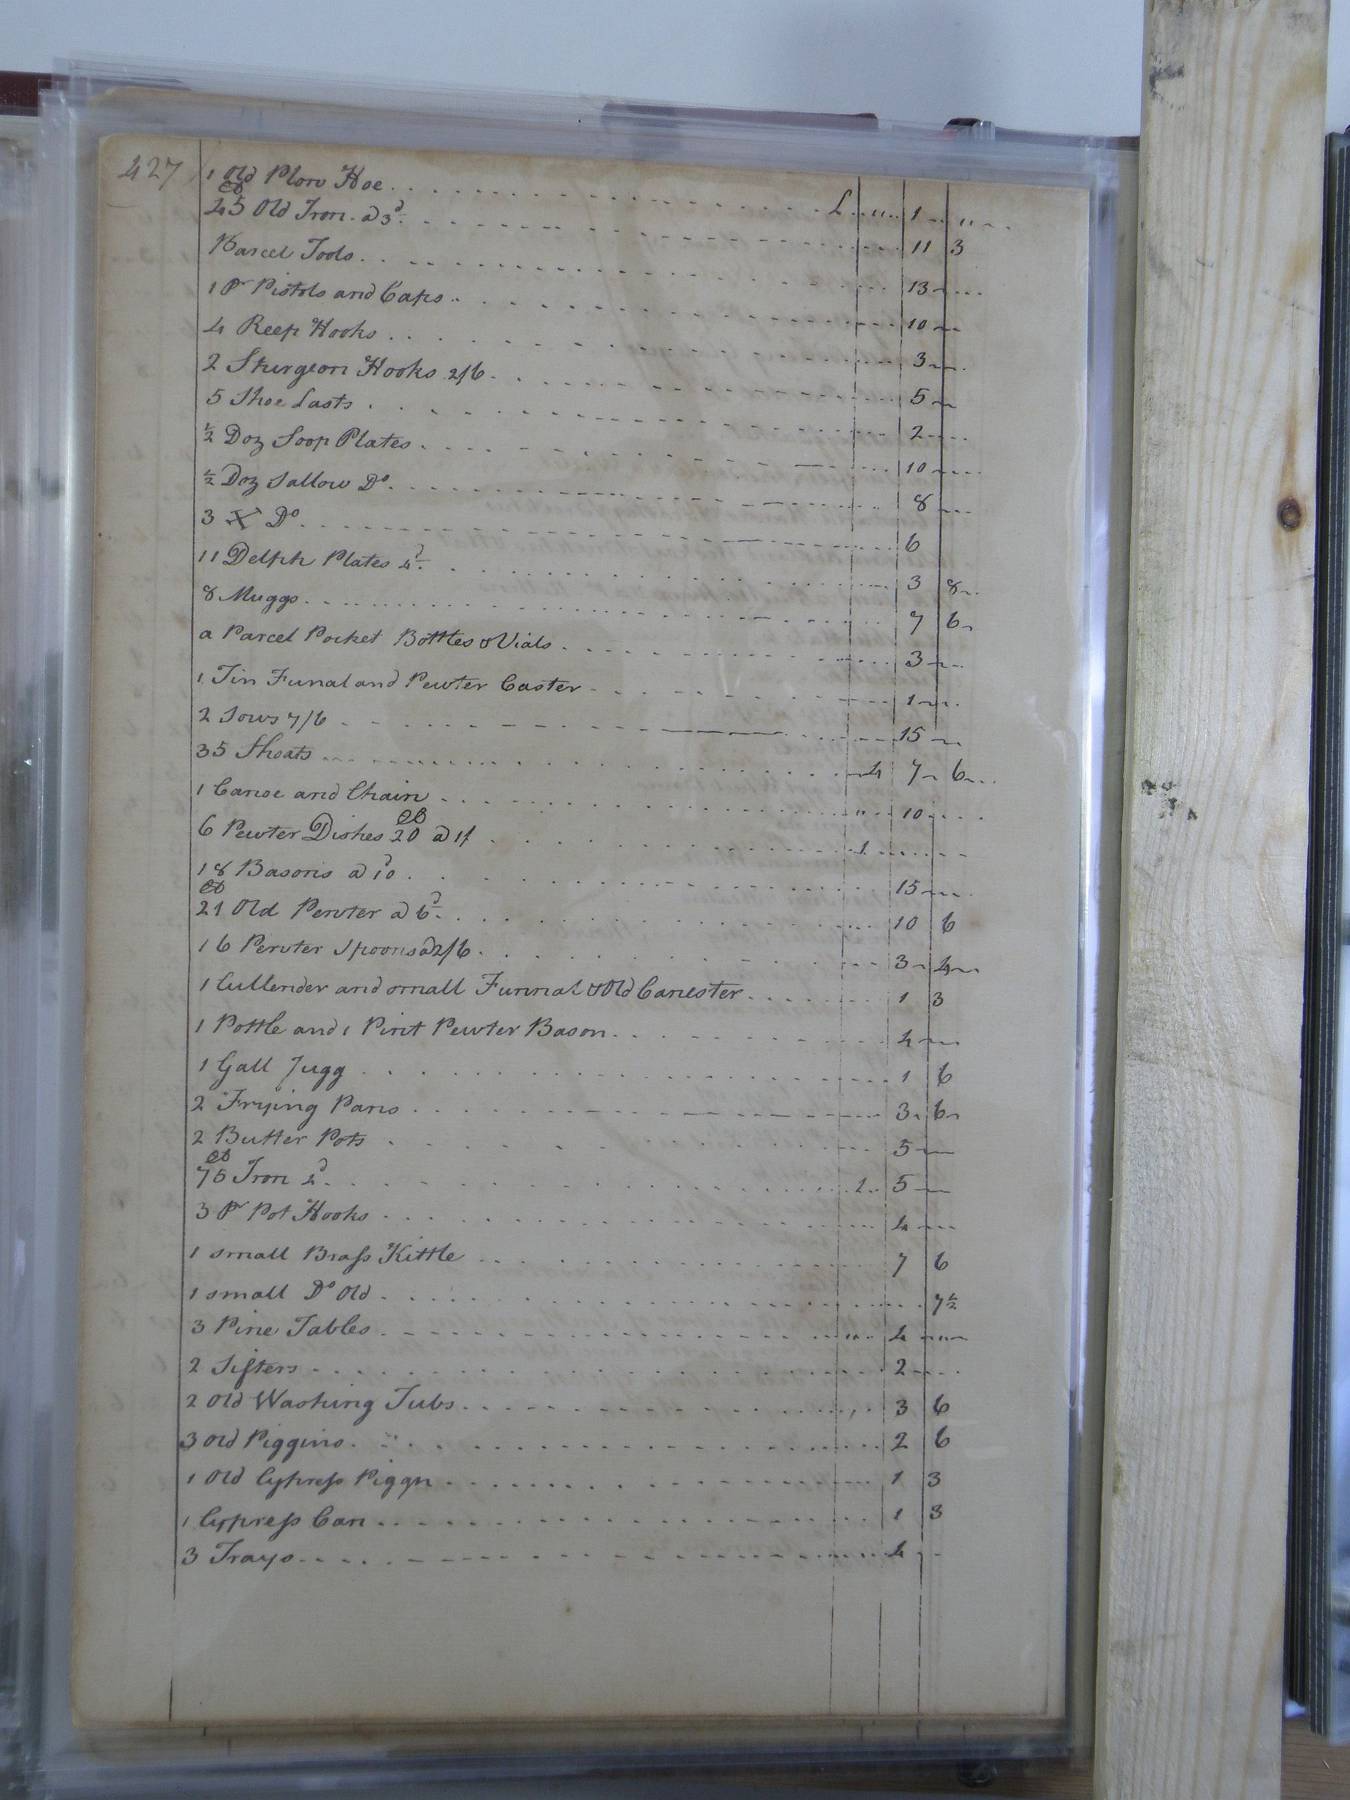 427
1 Old Plow Hoe £ " 1 "
45 lb Old Iron a 3d 11 3
Parcel Tools 13
1 Pr Pistols and Caps 10
4 Reep Hooks 3
2 Sturgeon Hooks 2/6 5
5 Shoe Lasts 2
½ Doz Soop Plates 10
½ Doz Sallow Do 8
3 X Do 6
11 Delph Plates 4d 3 8
8 Muggs 7 6
a Parcel Pocket Bottles & Vials 3
1 Tin Funal and Pewter Caster 1
2 Sows 7/6 15
35 Shoats 4 7 6
1 Canoe and Chain " 10
6 Pewter Dishes 20 lb a 1/ 1
18 Basons a 10d 15
21 lb Old Pewter a 6d 10 6
16 Pewter Spoons a 2/6 3 4
1 Cullender and small Funnal & Old Canester 1 3
1 Pottle and 1 Pint Pewter Bason 4
1 Gall Jugg 1 6
2 Frying Pans 3 6
2 Butter Pots 5
75 lb Iron 4d 1 5
3 Pr Pot Hooks 4
1 small Brass Kittle 7 6
1 small Do Old 7½
3 Pine Tables " 4
2 Sifters 2
2 Old Washing Tubs 3 6
3 Old Piggins 2 6
1 Old Cypress Piggn 1 3
1 Cypress Can 1 3
3 Trays 4